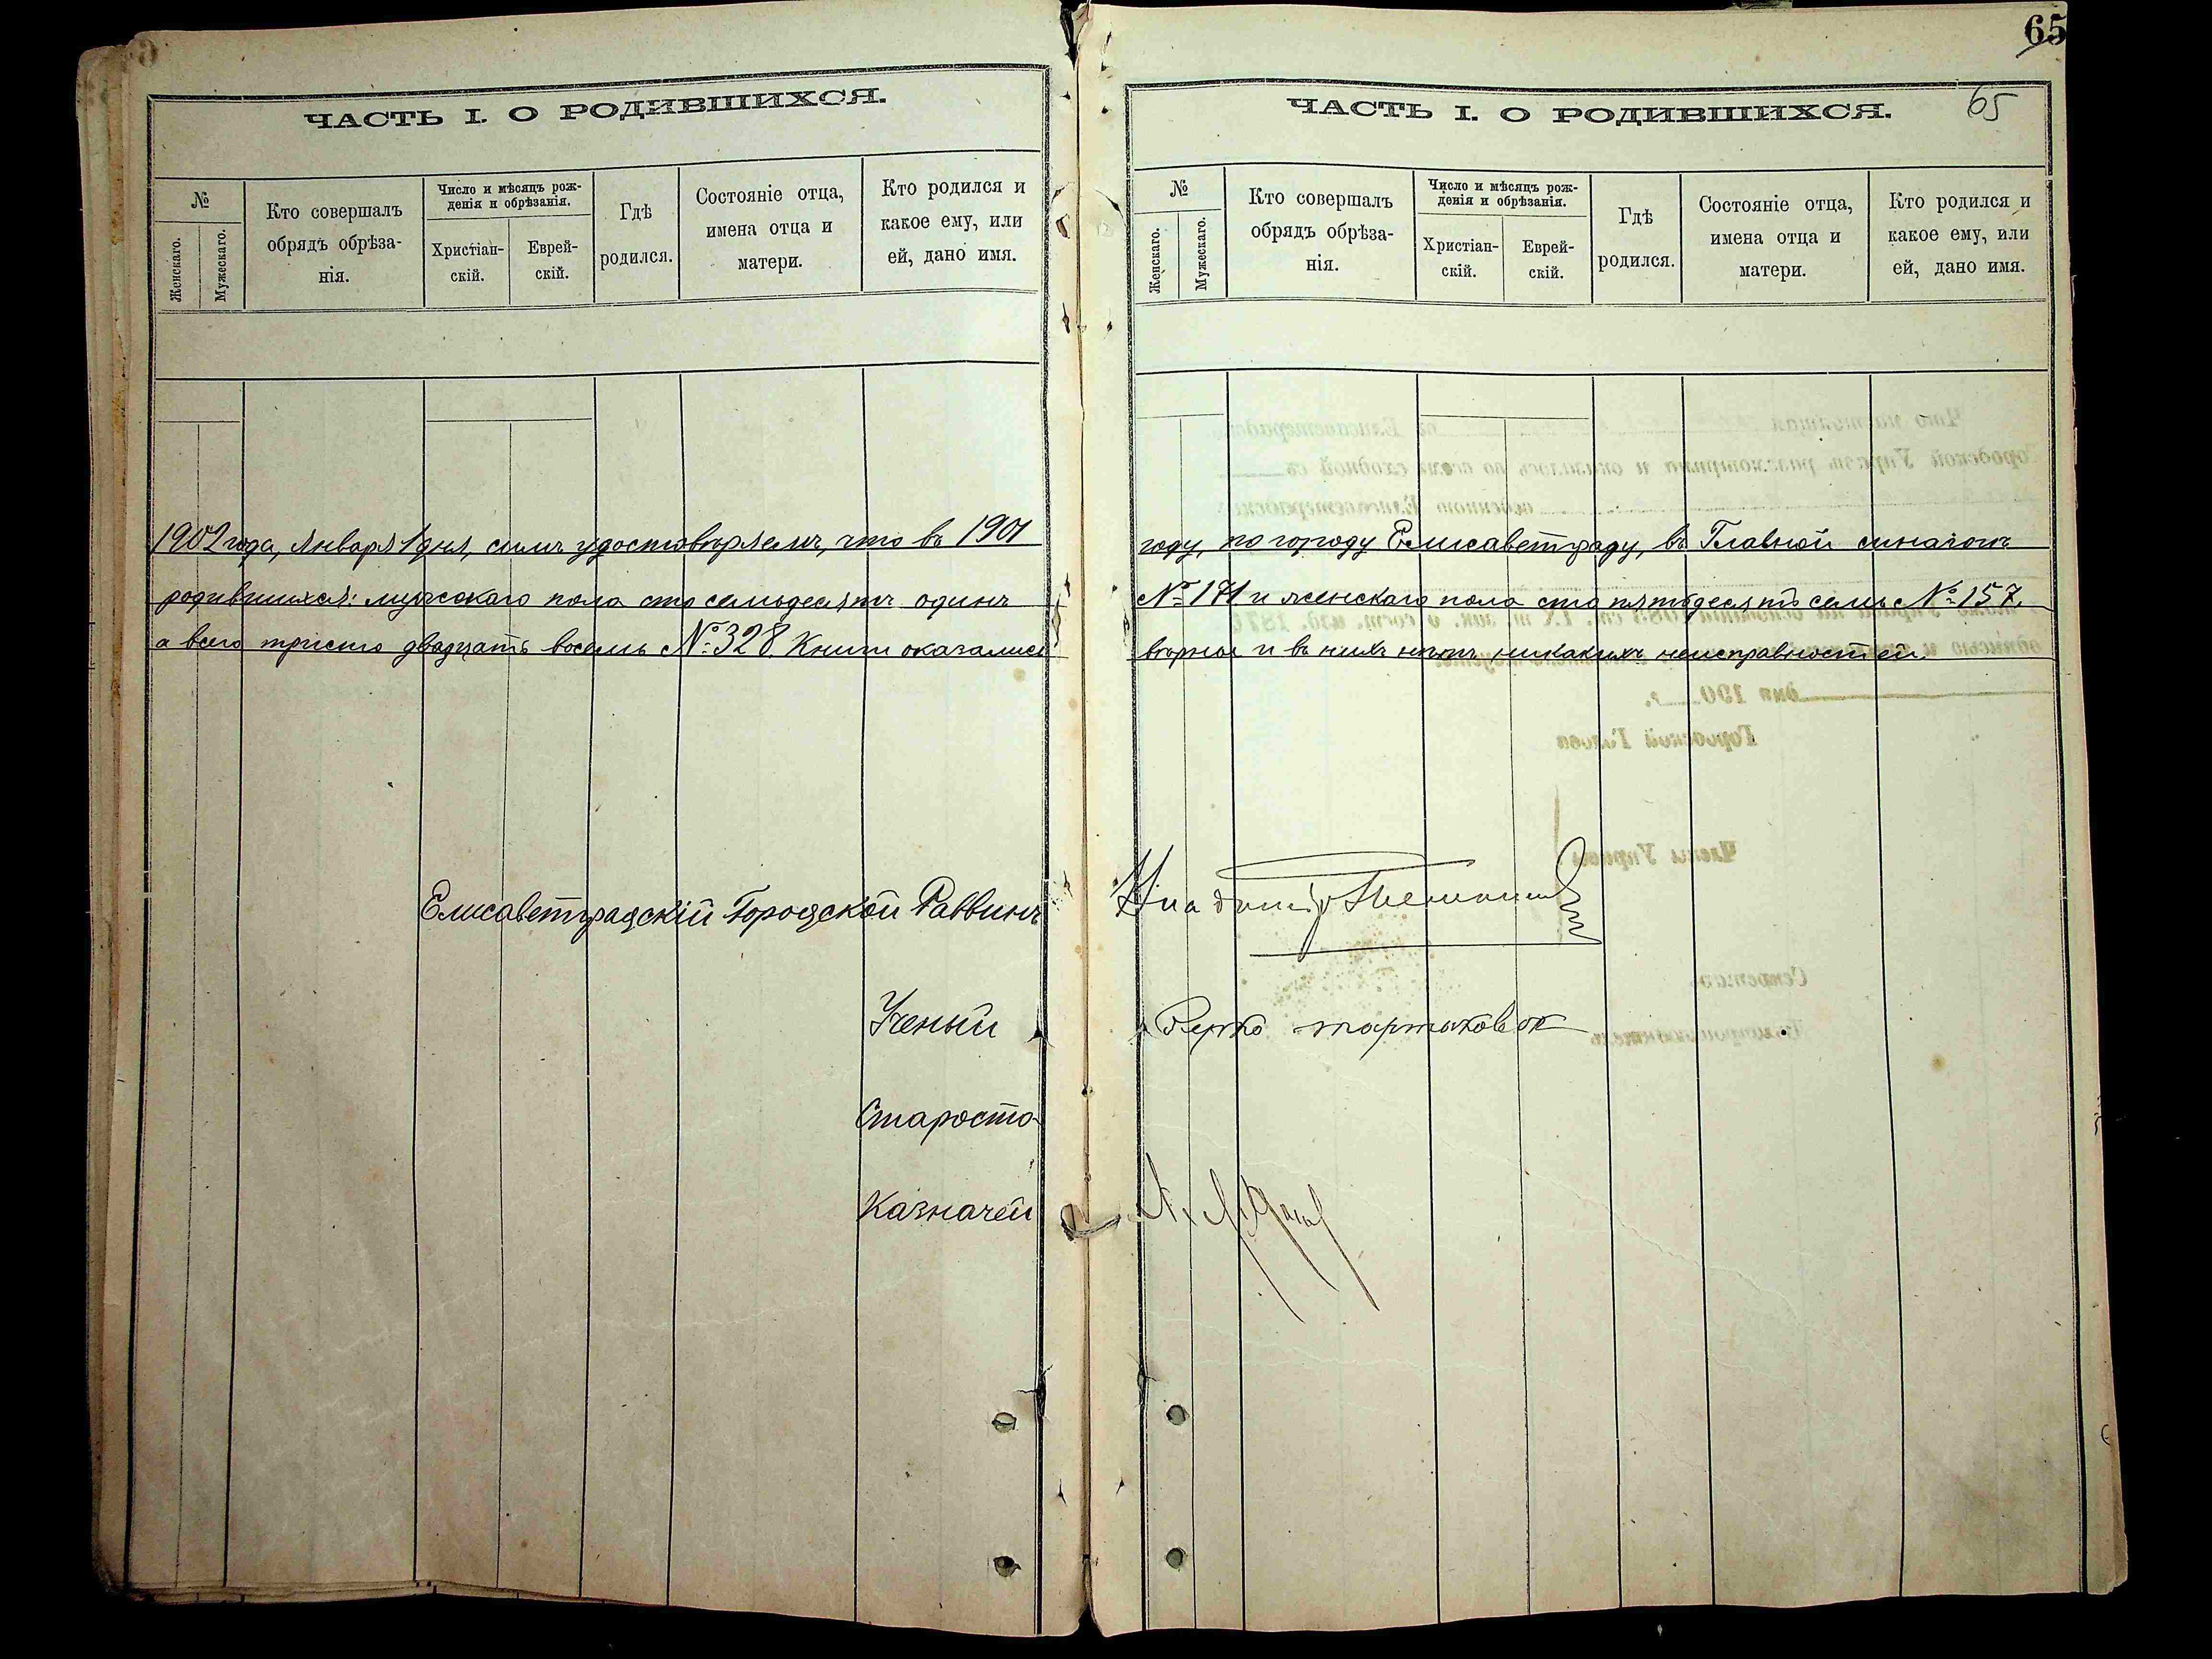 ЧАСТЬ I. О РОДИВШИХСЯ.
№
Женскаго.
Мужескаго.
Кто совершалъ
обрядъ обрѣза-
нія.
Число и мѣсяцъ рож-
денія и обрѣзанія.
Христіан-
скій.
Еврей-
скій.
Гдѣ
родился.
Состояніе отца,
имена отца и
матери.
Кто родился и
какое ему, или
ей, дано имя.
1902 года, Января 1 дня, симъ удостовѣряемъ, что въ 1901
родившихся: мужскаго пола сто семьдесятъ одинъ
а всего триста двадцать восемь № 328. Книги оказались
Елисаветградскій Городской Раввинъ
Ученый
Староста
Казначей
65
ЧАСТЬ I. О РОДИВШИХСЯ.
65
№
Женскаго.
Мужескаго.
Кто совершалъ
обрядъ обрѣза-
нія.
Число и мѣсяцъ рож-
денія и обрѣзанія.
Христіан-
скій.
Еврей-
скій.
Гдѣ
родился.
Состояніе отца,
имена отца и
матери.
Кто родился и
какое ему, или
ей, дано имя.
году, по городу Елисаветграду, въ Главной синагогѣ
№ 171 и женскаго пола сто пятьдесятъ семь № 157.
вѣрное и въ нихъ нѣтъ никакихъ неисправностей.